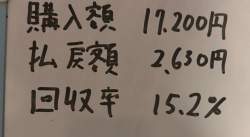 購入額 17,200円
払戻額 2,630円
回収率 15.2%